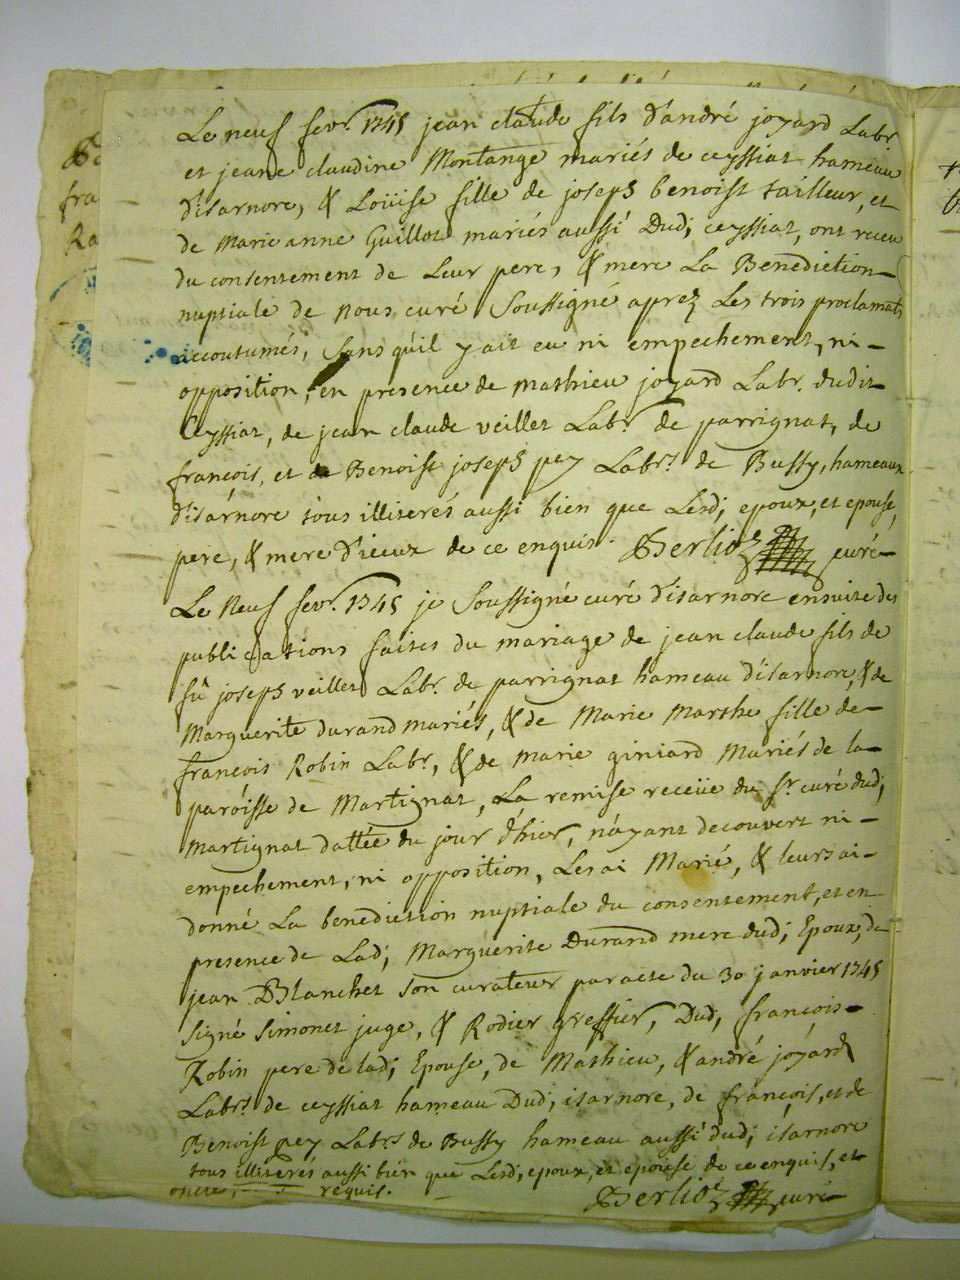 Le neuf fevr. 1745 jean claude fils d'andré joyard Labr.
et jeane claudine Montange mariés de ceyssiat hameau
d'isarnore, & Loüise fille de joseph benoist tailleur, et
de Marie anne Guillot mariés aussi Dud; ceyssiat, ont receu
du consentement de Leur pere, & mere La Benediction
nuptiale de nous curé Soussigné aprez Les trois proclamats
accoutumés, sans qu'il y ait eu ni empechement, ni
opposition, en presence de mathieu joyard Labr. dudit
Ceyssiat, de jean claude veillet Labr. de parrignat, de
françois, et de Benoist joseph pey Labrs. de Bussy, hameaux
d'isarnore tous illiterés aussi bien que Lesd; epoux, et epouse,
pere, & mere d'iceux de ce enquis. Berlioz curé
Le Neuf fevr. 1745 je Soussigné curé d'isarnore ensuite des
publications faites du mariage de jean claude fils de
fû joseph veillet Labr. de parrignat hameau d'isarnore, & de
Marguerite durand mariés, & de Marie Marthe fille de
françois Robin Labr, & de marie giniard Mariés de la
paroisse de Martignat, La remise receüe du sr. curé dud;
Martignat dattée du jour d'hier, n'ayant decouvert ni
empechement, ni opposition, Les ai Marié, & leurs ai
donné La benediction nuptiale du consentement, et en
presence de Lad; Marguerite Durand mere dud; Epoux, de
jean Blanchet son curateur par acte du 30 janvier 1745
signé Simonet juge, & Rodier greffier, Dud; françois
Robin pere de lad; Epouse, de Mathieu, & andré joyard
Labrs. de ceyssiat hameau Dud; isarnore, de françois, et de
Benoist pey Labrs. de Bussy hameau aussi dud; isarnore
tous illiterés aussi bien que Lesd; epoux, et epouse de ce enquis, et
requis. Berlioz curé